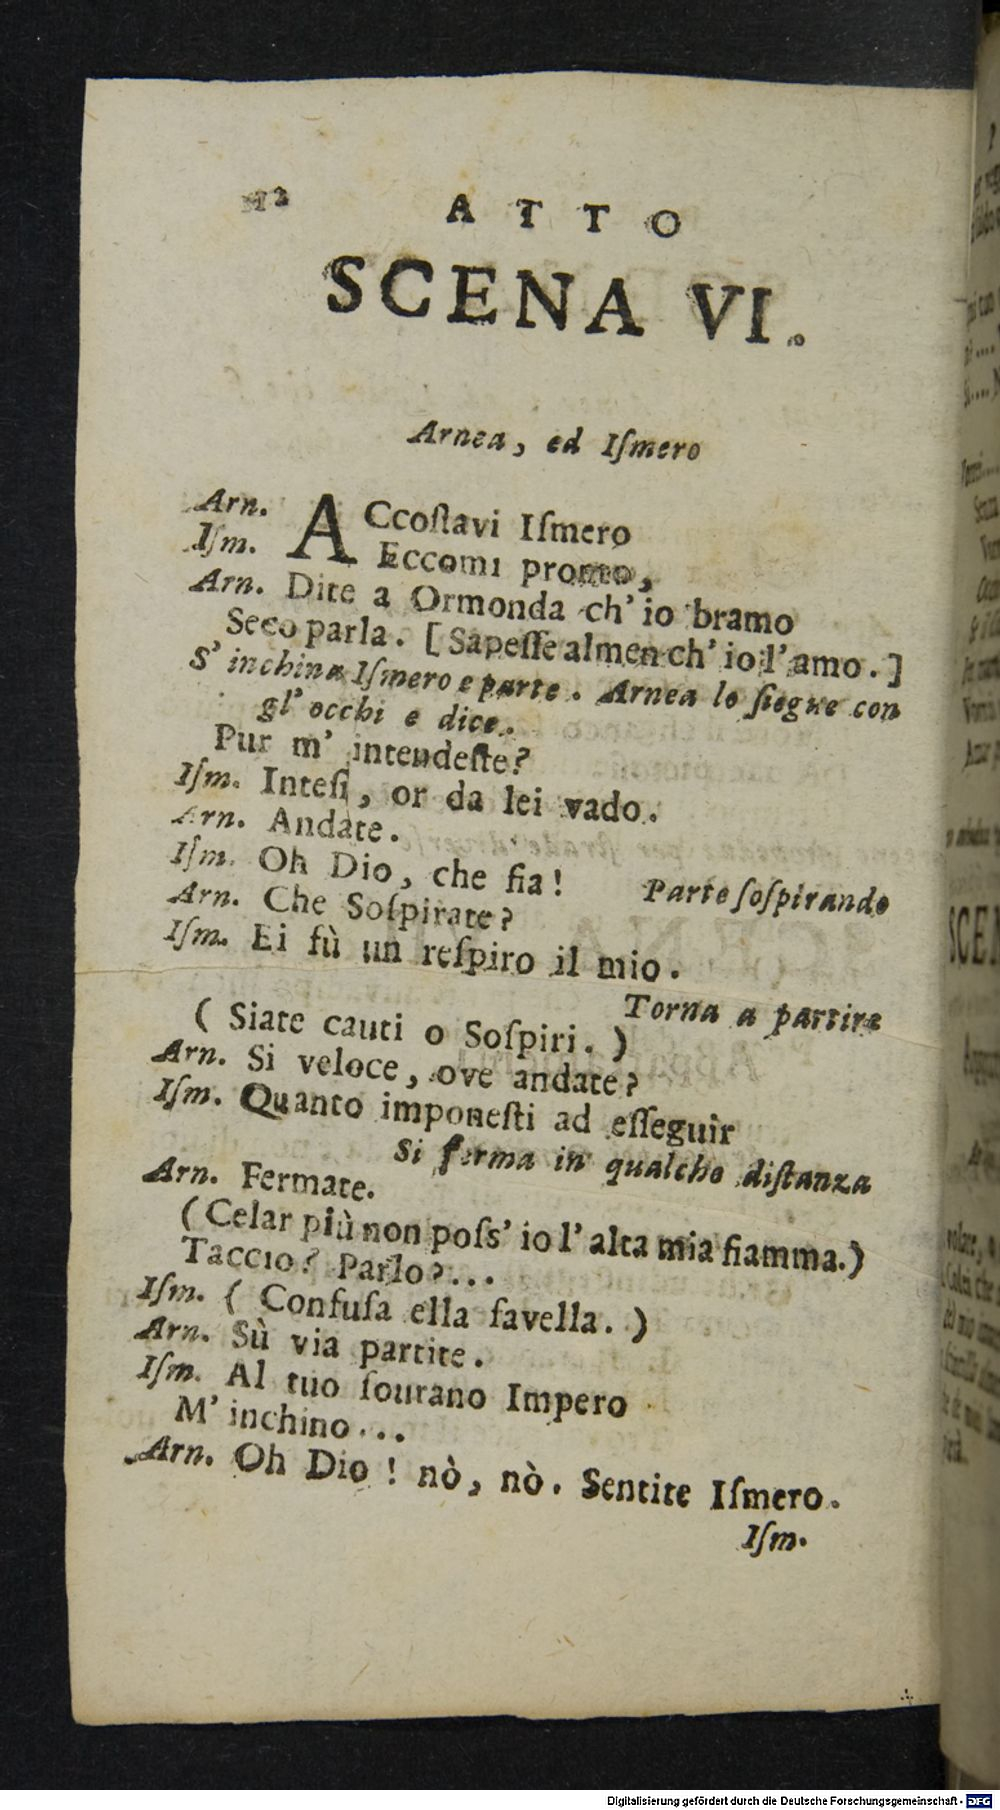 12
ATTO
SCENA VI.
Arnea, ed Iſmero
Arn. ACcoſtavi Iſmero
Iſm. Eccomi pronto,
Arn. Dite a Ormonda ch' io bramo
Seco parla. [Sapeſſe almen ch' io l' amo.]
S' inchina Iſmero e parte. Arnea lo ſiegue con
gl' occhi e dice.
Pur m' intendeſte?
Iſm. Inteſi, or da lei vado.
Arn. Andate.
Iſm. Oh Dio, che fia! Parte ſoſpirando
Arn. Che Soſpirate?
Iſm. Ei fù un reſpiro il mio.
Torna a partire
( Siate cauti o Soſpiri. )
Arn. Si veloce, ove andate?
Iſm. Quanto imponeſti ad eſſeguir
Si ferma in qualche diſtanza
Arn. Fermate.
(Celar più non poſs' io l' alta mia fiamma.)
Taccio? Parlo?...
Iſm. ( Confuſa ella favella. )
Arn. Sù via partite.
Iſm. Al tuo ſourano Impero
M' inchino...
Arn. Oh Dio! nò, nò. Sentite Iſmero.
Iſm.
Digitalisierung gefördert durch die Deutsche Forschungsgemeinschaft - DFG